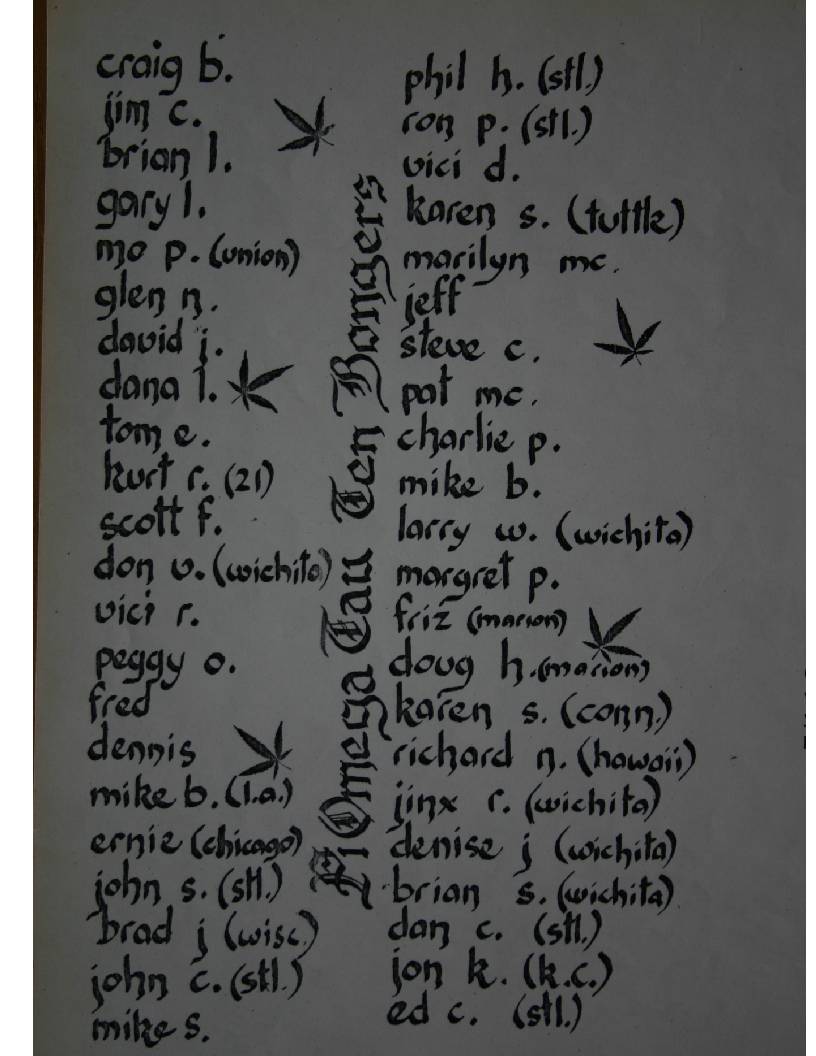 craig b.
jim c.
brian l.
gary l.
mo p. (union)
glen n.
david j.
dana l.
tom e.
kurt r. (21)
scott f.
don v. (wichita)
vici r.
peggy o.
fred
dennis
mike b. (l.a.)
ernie (chicago)
john s. (stl.)
brad j (wisc.)
john c. (stl.)
mike s.
Pi Omega Tau Ten Bongers
phil h. (stl.)
ron p. (stl.)
vici d.
karen s. (tuttle)
marilyn mc.
jeff
steve c.
pat mc.
charlie p.
mike b.
larry w. (wichita)
margret p.
friz (marion)
doug h. (marion)
karen s. (conn.)
richard n. (hawaii)
jinx r. (wichita)
denise j (wichita)
brian s. (wichita)
dan c. (stl.)
jon k. (k.c.)
ed c. (stl.)